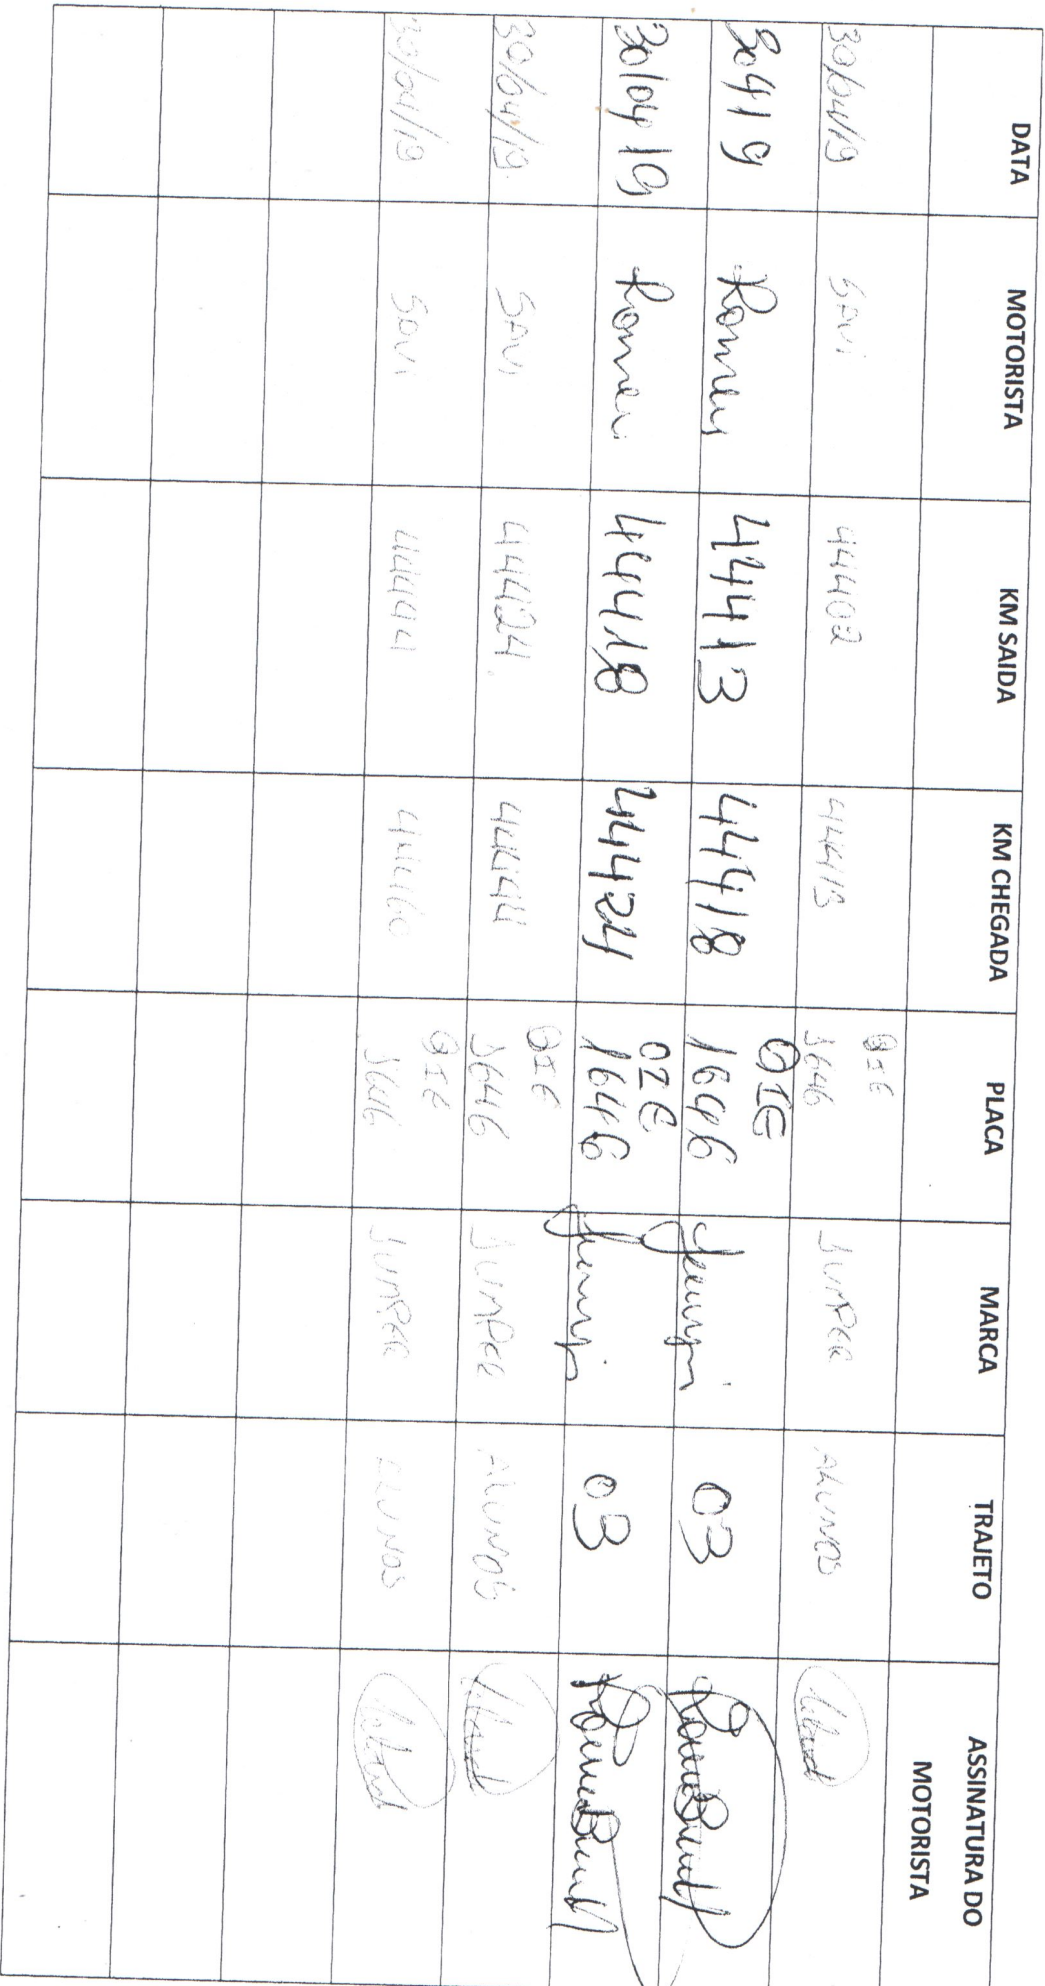 DATA MOTORISTA KM SAIDA KM CHEGADA PLACA MARCA TRAJETO ASSINATURA DO MOTORISTA
30/04/19 SAVI 44402 44413 QIE 1646 JUMPER ALUNOS
30419 Romeu 44413 44418 QIE 1646 03
30/04/19 Romeu 44418 44424 OIE 1646 03
30/04/19 SAVI 44424 44444 QIE 1646 JUMPER ALUNOS
30/04/19 SAVI 44444 44460 QIE 1646 JUMPER ALUNOS